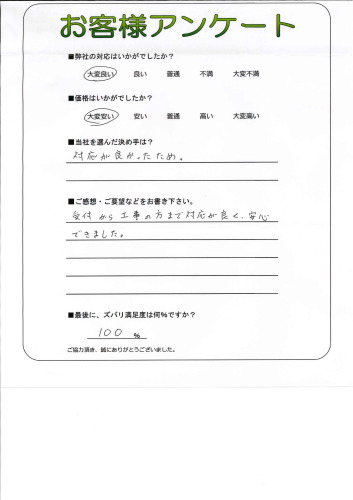 お客様アンケート
■弊社の対応はいかがでしたか？
大変良い 良い 普通 不満 大変不満
■価格はいかがでしたか？
大変安い 安い 普通 高い 大変高い
■当社を選んだ決め手は？
対応が良かったため。
■ご感想・ご要望などをお書き下さい。
受付から工事の方まで対応が良く、安心
できました。
■最後に、ズバリ満足度は何%ですか？
100 %
ご協力頂き、誠にありがとうございました。